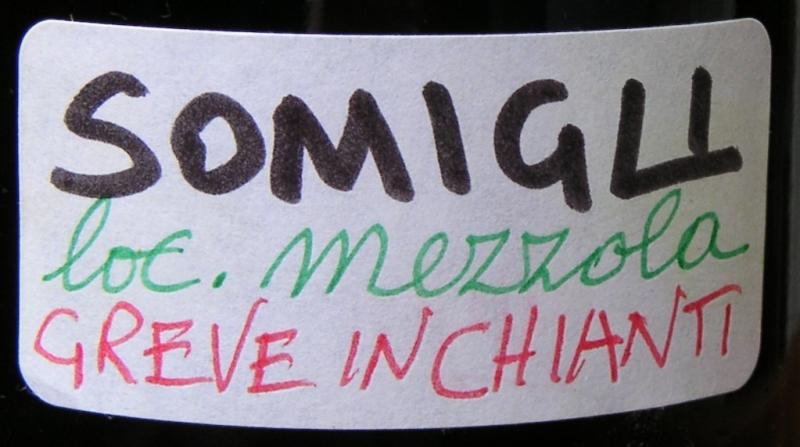 SOMIGLI
loc. mezzola
GREVE IN CHIANTI